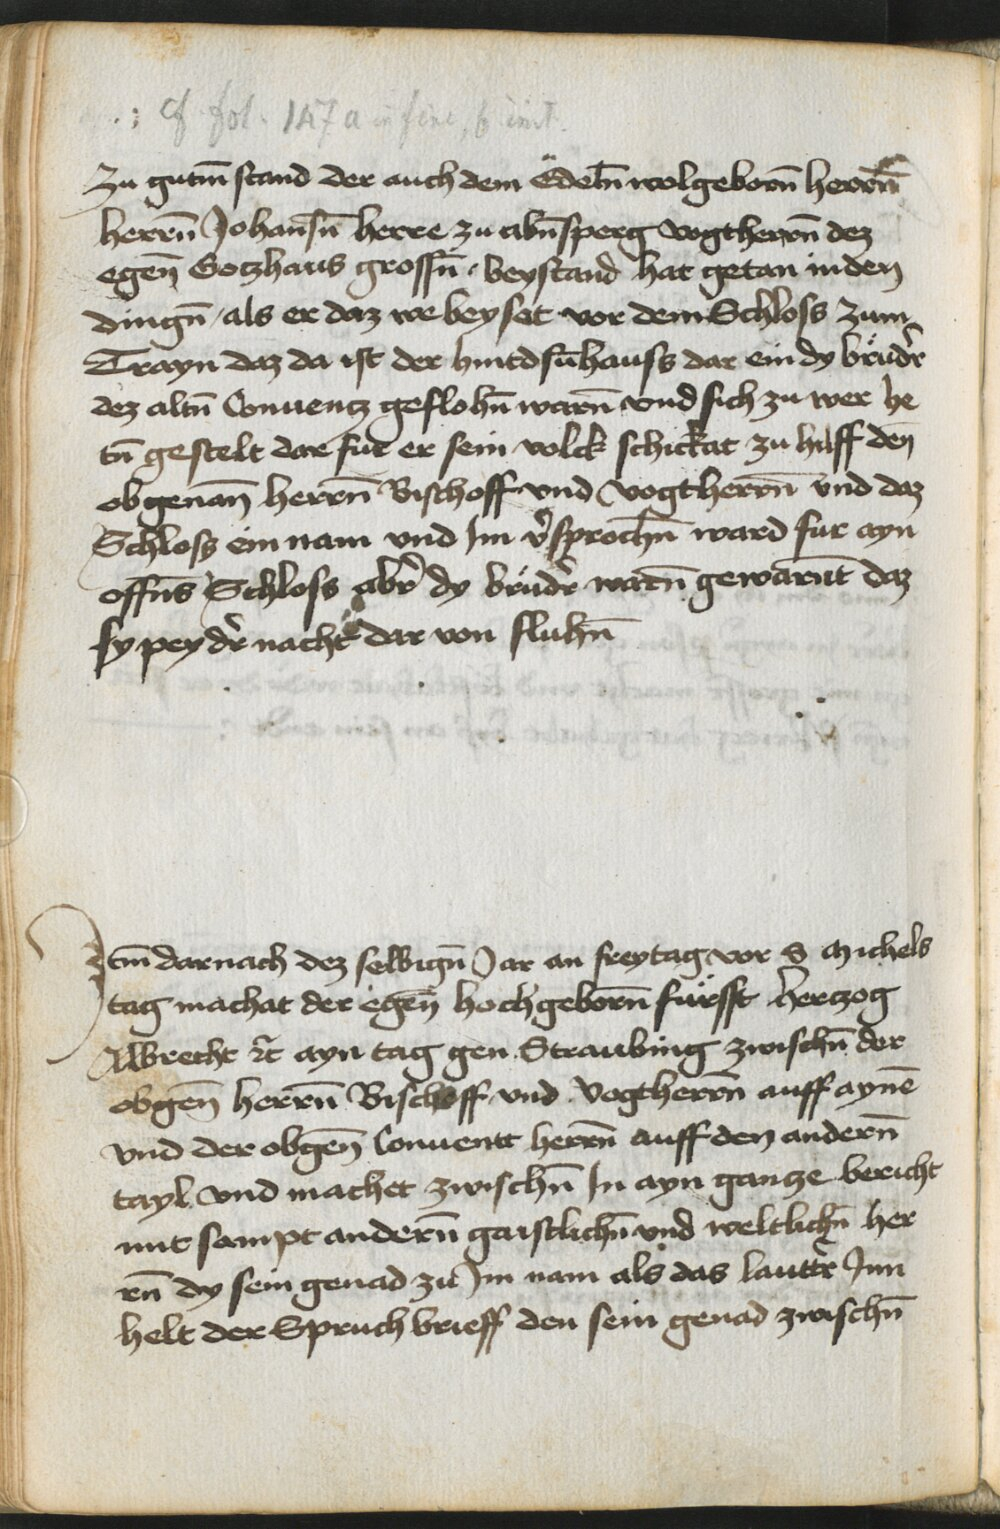 cf fol. 147 a in fine, b init.
Zu gutm̄ stand der auch dem Edeln̄ wolgeborn̄ herrn̄
herrn̄ Johansn̄ herre zu abn̄sperg vogtherrn̄ dez
egen̄ Gotzhaus grossn̄ beystand hat getan in den
dingn̄ / als er daz we bey set vor dem Schloss zum
Trayn daz da ist der hautdsn̄hauss dar ein dy brüdr̄
dez altn̄ Conuentz geflohn̄ warn̄ vnd sich zu wer he
tn̄ gestelt dar fur er sein volck schickat zu hilff den
obgenan̄ herrn̄ Bischoff vnd vogtherrn̄ vnd daz
Schloss ein nam vnd Im v̄sprochn̄ ward fur ayn
offns̄ Schloss abr̄ dy brüdr̄ warn̄ gewarnt̄ daz
sy pey dr̄ nacht dar von fluhn̄
Itm̄ darnach dez selbign̄ Jar an freytag vor S Michels
tag machat der egen̄ hochgeborn̄ fürsst hertzog
Albrecht ꝛc̄ ayn tag gen Straubing zwischn̄ der
obgen̄ herrn̄ Bischoff vnd Vogtherrn̄ auff aynē
vnd der obgen̄ Conuentt herrn̄ auff den andern̄
tayl vnd machet zwischn̄ In ayn gantze bericht
mit sampt andern̄ gaistlichn̄ vnd weltlichn̄ her
rn̄ dy sein genad zu Im nam als das lauttr̄ Inn
helt der Spruch brieff den sein genad zwischn̄